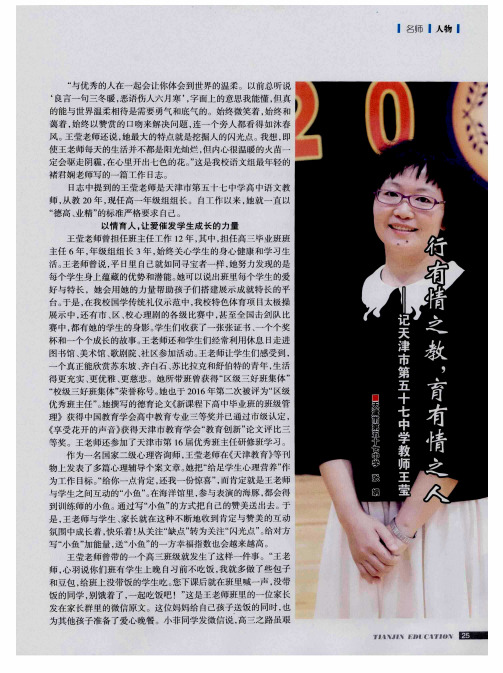 名师 人物
“与优秀的人在一起会让你体会到世界的温柔。以前总听说
‘良言一句三冬暖,恶语伤人六月寒’,字面上的意思我能懂,但真
的能与世界温柔相待是需要勇气和底气的。始终微笑着,始终和
蔼着,始终以赞赏的口吻来解决问题,连一个旁人都看得如沐春
风。王莹老师还说,她最大的特点就是挖掘人的闪光点。我想,即
使王老师每天的生活并不都是阳光灿烂,但内心很温暖的火苗一
定会驱走阴霾,在心里开出七色的花。”这是我校语文组最年轻的
褚君娴老师写的一篇工作日志。
日志中提到的王莹老师是天津市第五十七中学高中语文教
师,从教 20 年,现任高一年级组组长。自工作以来,她就一直以
“德高、业精”的标准严格要求自己。
以情育人,让爱催发学生成长的力量
王莹老师曾担任班主任工作 12 年,其中,担任高三毕业班班
主任 6 年,年级组组长 3 年,始终关心学生的身心健康和学习生
活。王老师曾说,平日里自己就如同寻宝者一样,她努力发现的是
每个学生身上蕴藏的优势和潜能。她可以说出班里每个学生的爱
好与特长,她会用她的力量帮助孩子们搭建展示成就特长的平
台。于是,在我校国学传统礼仪示范中,我校特色体育项目太极操
展示中,还有市、区、校心理剧的各级比赛中,甚至全国击剑队比
赛中,都有她的学生的身影。学生们收获了一张张证书、一个个奖
杯和一个个成长的故事。王老师还和学生们经常利用休息日走进
图书馆、美术馆、歌剧院、社区参加活动。王老师让学生们感受到,
一个真正能欣赏苏东坡、齐白石、苏比拉克和舒伯特的青年,生活
得更充实、更优雅、更慈悲。她所带班曾获得“区级三好班集体”
“校级三好班集体”荣誉称号。她也于 2016 年第二次被评为“区级
优秀班主任”。她撰写的德育论文《新课程下高中毕业班的班级管
理》获得中国教育学会高中教育专业三等奖并已通过市级认定,
《享受花开的声音》获得天津市教育学会“教育创新”论文评比三
等奖。王老师还参加了天津市第 16 届优秀班主任研修班学习。
作为一名国家二级心理咨询师,王莹老师在《天津教育》等刊
物上发表了多篇心理辅导个案文章。她把“给足学生心理营养”作
为工作目标。“给你一点肯定,还我一份惊喜”,而肯定就是王老师
与学生之间互动的“小鱼”。在海洋馆里,参与表演的海豚,都会得
到训练师的小鱼。通过写“小鱼”的方式把自己的赞美送出去。于
是,王老师与学生、家长就在这种不断地收到肯定与赞美的互动
氛围中成长着,快乐着!从关注“缺点”转为关注“闪光点”。给对方
写“小鱼”加能量,送“小鱼”的一方幸福指数也会越来越高。
王莹老师曾带的一个高三班级就发生了这样一件事。“王老
师,心羽说你们班有学生上晚自习前不吃饭,我就多做了些包子
和豆包,给班上没带饭的学生吃。您下课后就在班里喊一声,没带
饭的同学,别饿着了,一起吃饭吧!”这是王老师班里的一位家长
发在家长群里的微信原文。这位妈妈给自己孩子送饭的同时,也
为其他孩子准备了爱心晚餐。小菲同学发微信说,高三之路虽艰
行有情之教,育有情之人
——记天津市第五十七中学教师王莹
■天津市第五十七中学
2 0
TIANJIN EDUCATION 25